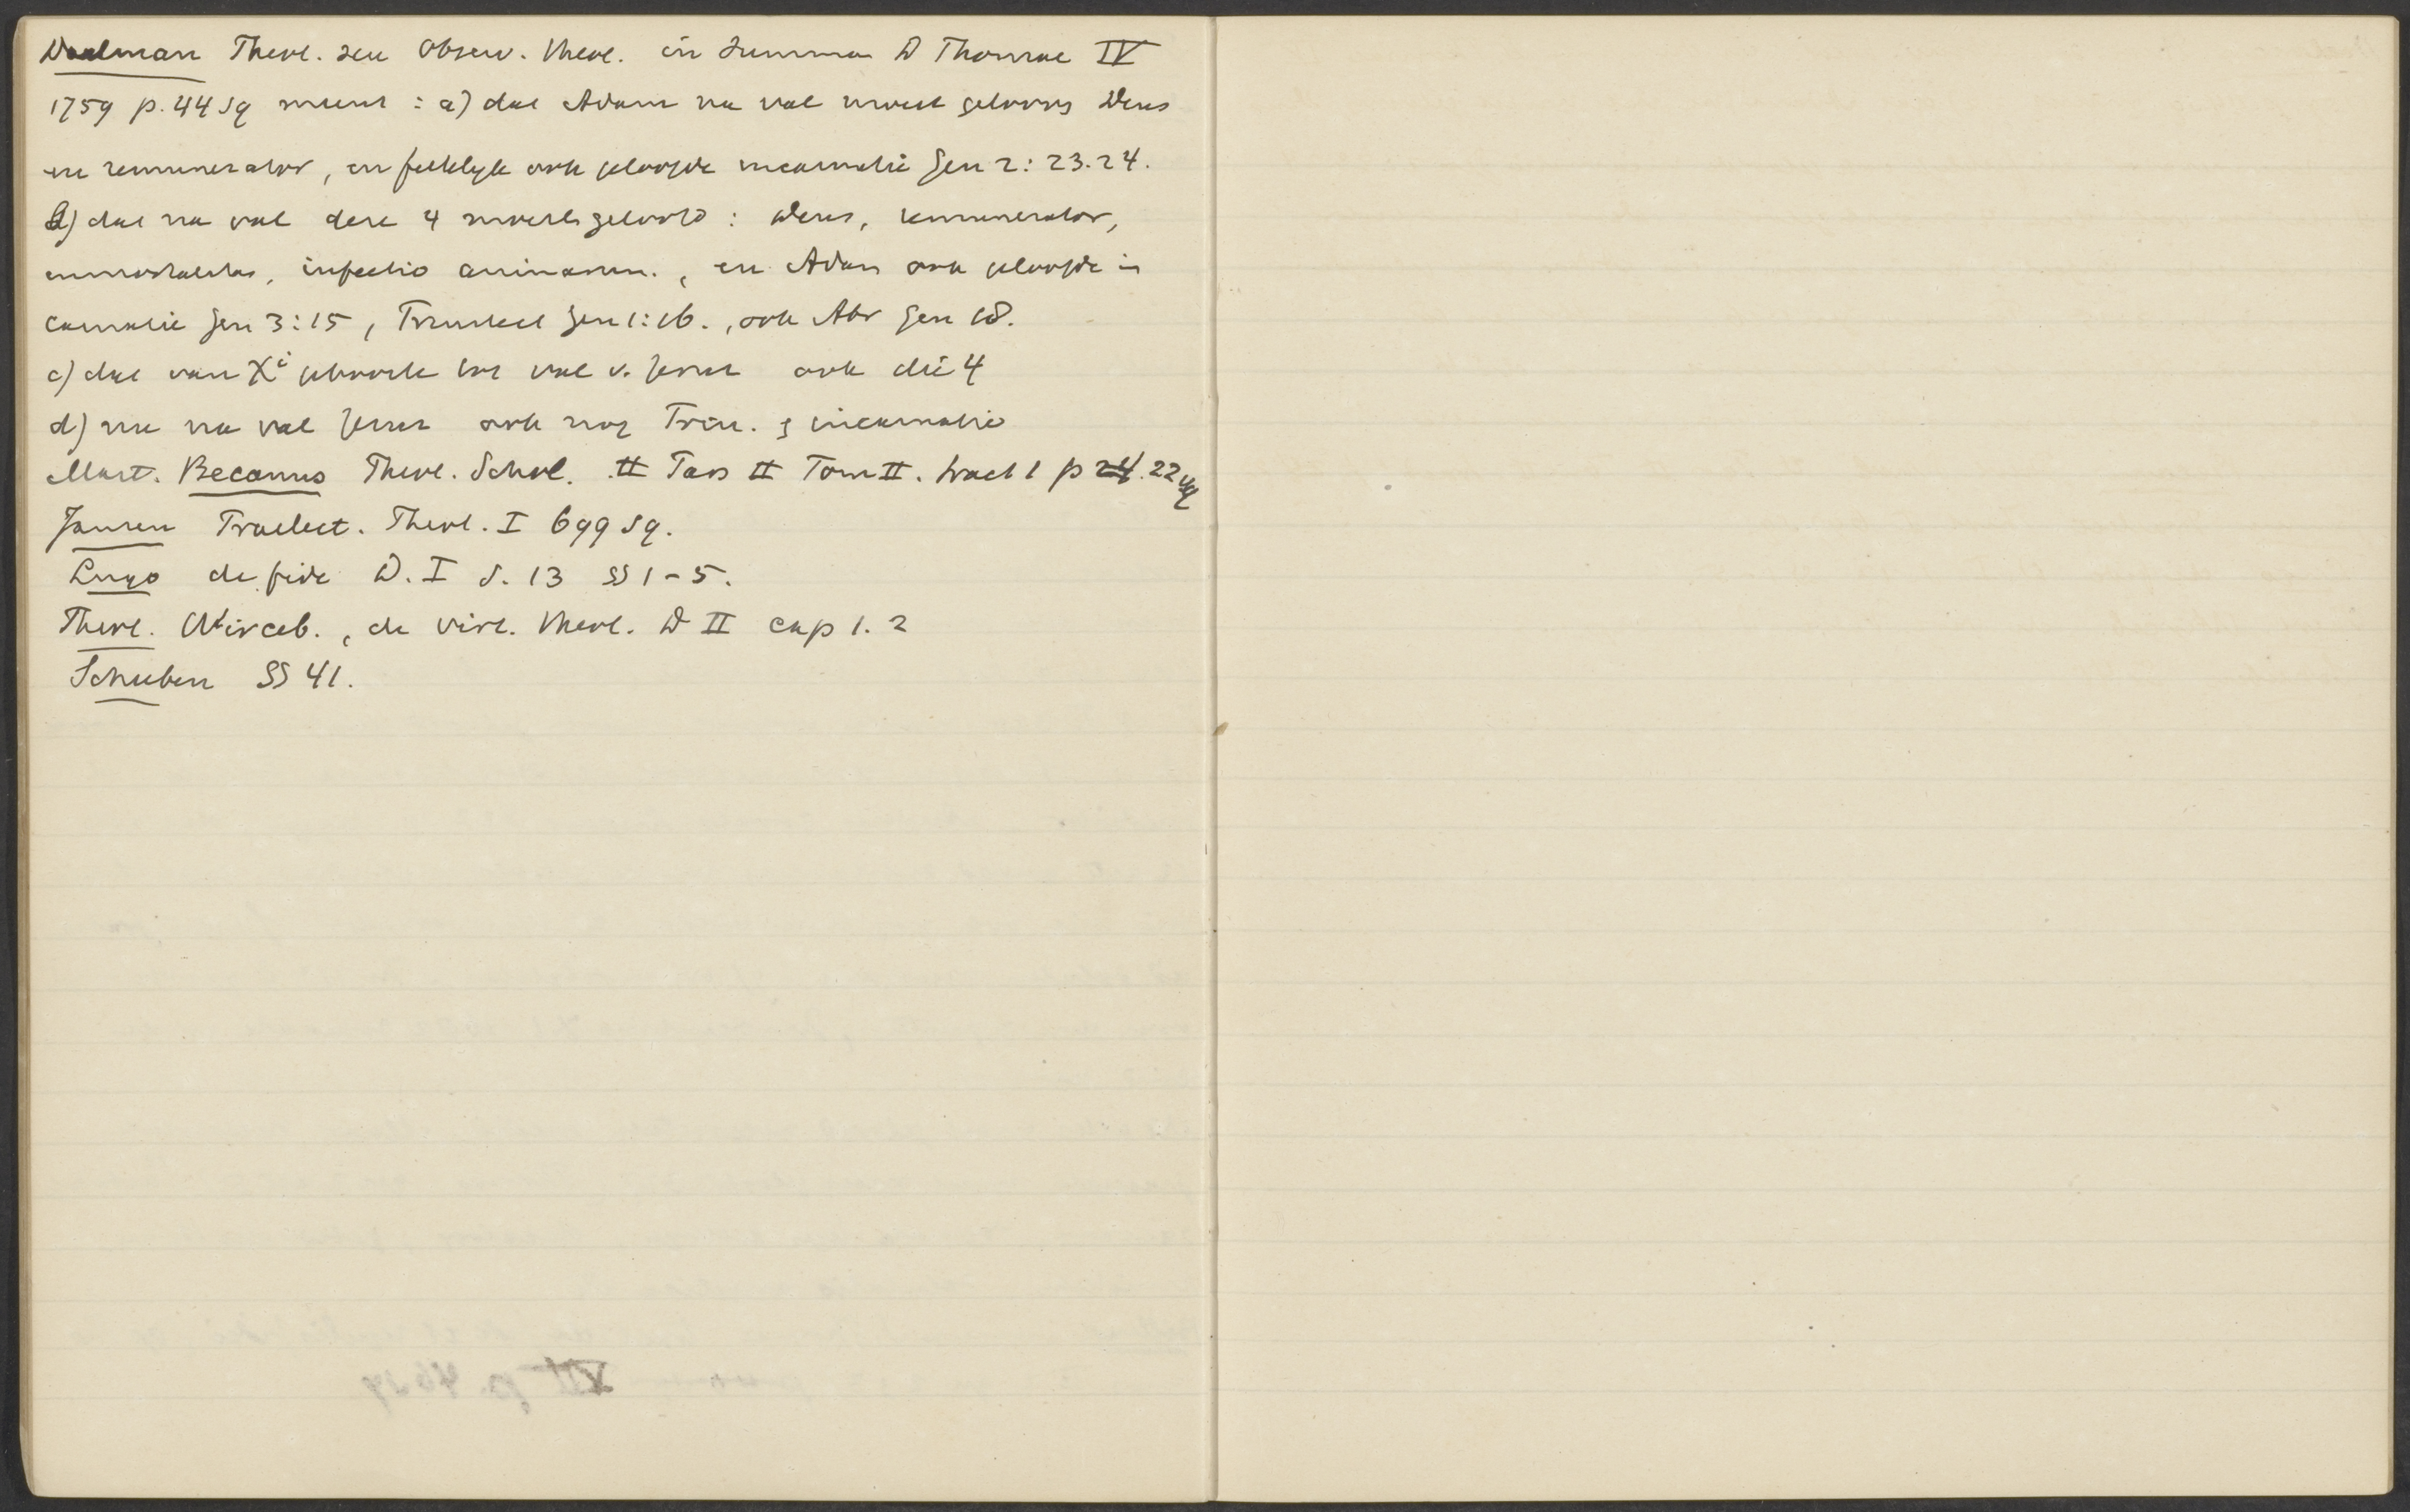 Daelman Theol. seu Observ. theol. in Summa D Thomae IV
1759 p. 44 sq meent : a) dat Adam na val moest gelooven Deus
en remunerator, en feitelyk ook geloofde incarnatie Gen 2: 23.24.
b) dat na val deze 4 moest geloofd : Deus, remunerator,
immortalitas, infectio animarum., en Adam ook geloofde in
carnatie Gen 3:15, Triniteit Gen 1:26., ook Abr Gen 18.
c) dat van Xi geboorte tot val v. Jerus ook die 4
d) nu na val Jerus ook nog Trin. & incarnatio
Mart. Becanus Theol. Schol. II Pars II Tom II. tract 1 p 24. 22 sq
Jansen Praelect. Theol. I 699 sq.
Lugo de fide D. I S. 13 §§ 1-5.
Theol. Wirceb., de virt. theol. D II cap 1. 2
Scheeben §§ 41.
XII p. 46 sq